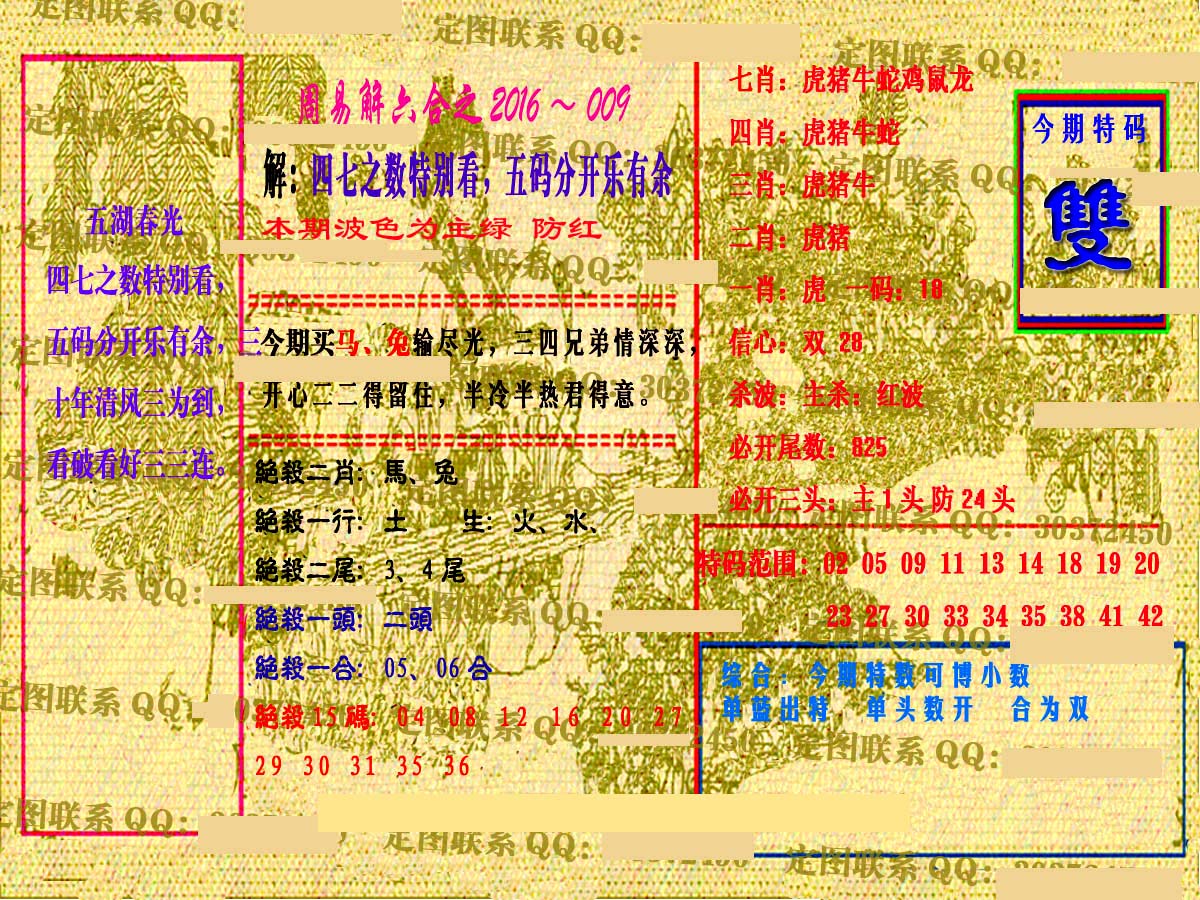 定图联系 QQ:
定图联系 QQ:
定图联系 QQ:
周易解六合之 2016 ~ 009
解: 四七之数特别看, 五码分开乐有余
本期波色为主绿 防红
五湖春光
四七之数特别看,
五码分开乐有余, 三
十年清风三为到,
看破看好三三连。
今期买马、兔输尽光, 三四兄弟情深深,
开心二二得留住, 半冷半热君得意。
絕殺二肖: 馬、兔
絕殺一行: 土 生: 火、水、
絕殺二尾: 3、4 尾
絕殺一頭: 二頭
絕殺一合: 05、06 合
絕殺 15 碼: 04 08 12 16 20 27
29 30 31 35 36
七肖: 虎猪牛蛇鸡鼠龙
四肖: 虎猪牛蛇
三肖: 虎猪牛
二肖: 虎猪
一肖: 虎 一码: 18
信心: 双 28
杀波: 主杀: 红波
必开尾数: 825
必开三头: 主 1 头 防 24 头
今期特码
雙
特码范围: 02 05 09 11 13 14 18 19 20
23 27 30 33 34 35 38 41 42
综合: 今期特数可博小数
单蓝出特 单头数开 合为双
定图联系 QQ: 30372450
定图联系 QQ:
定图联系 QQ:
定图联系 QQ:
定图联系 QQ:
定图联系 QQ:
定图联系 QQ: